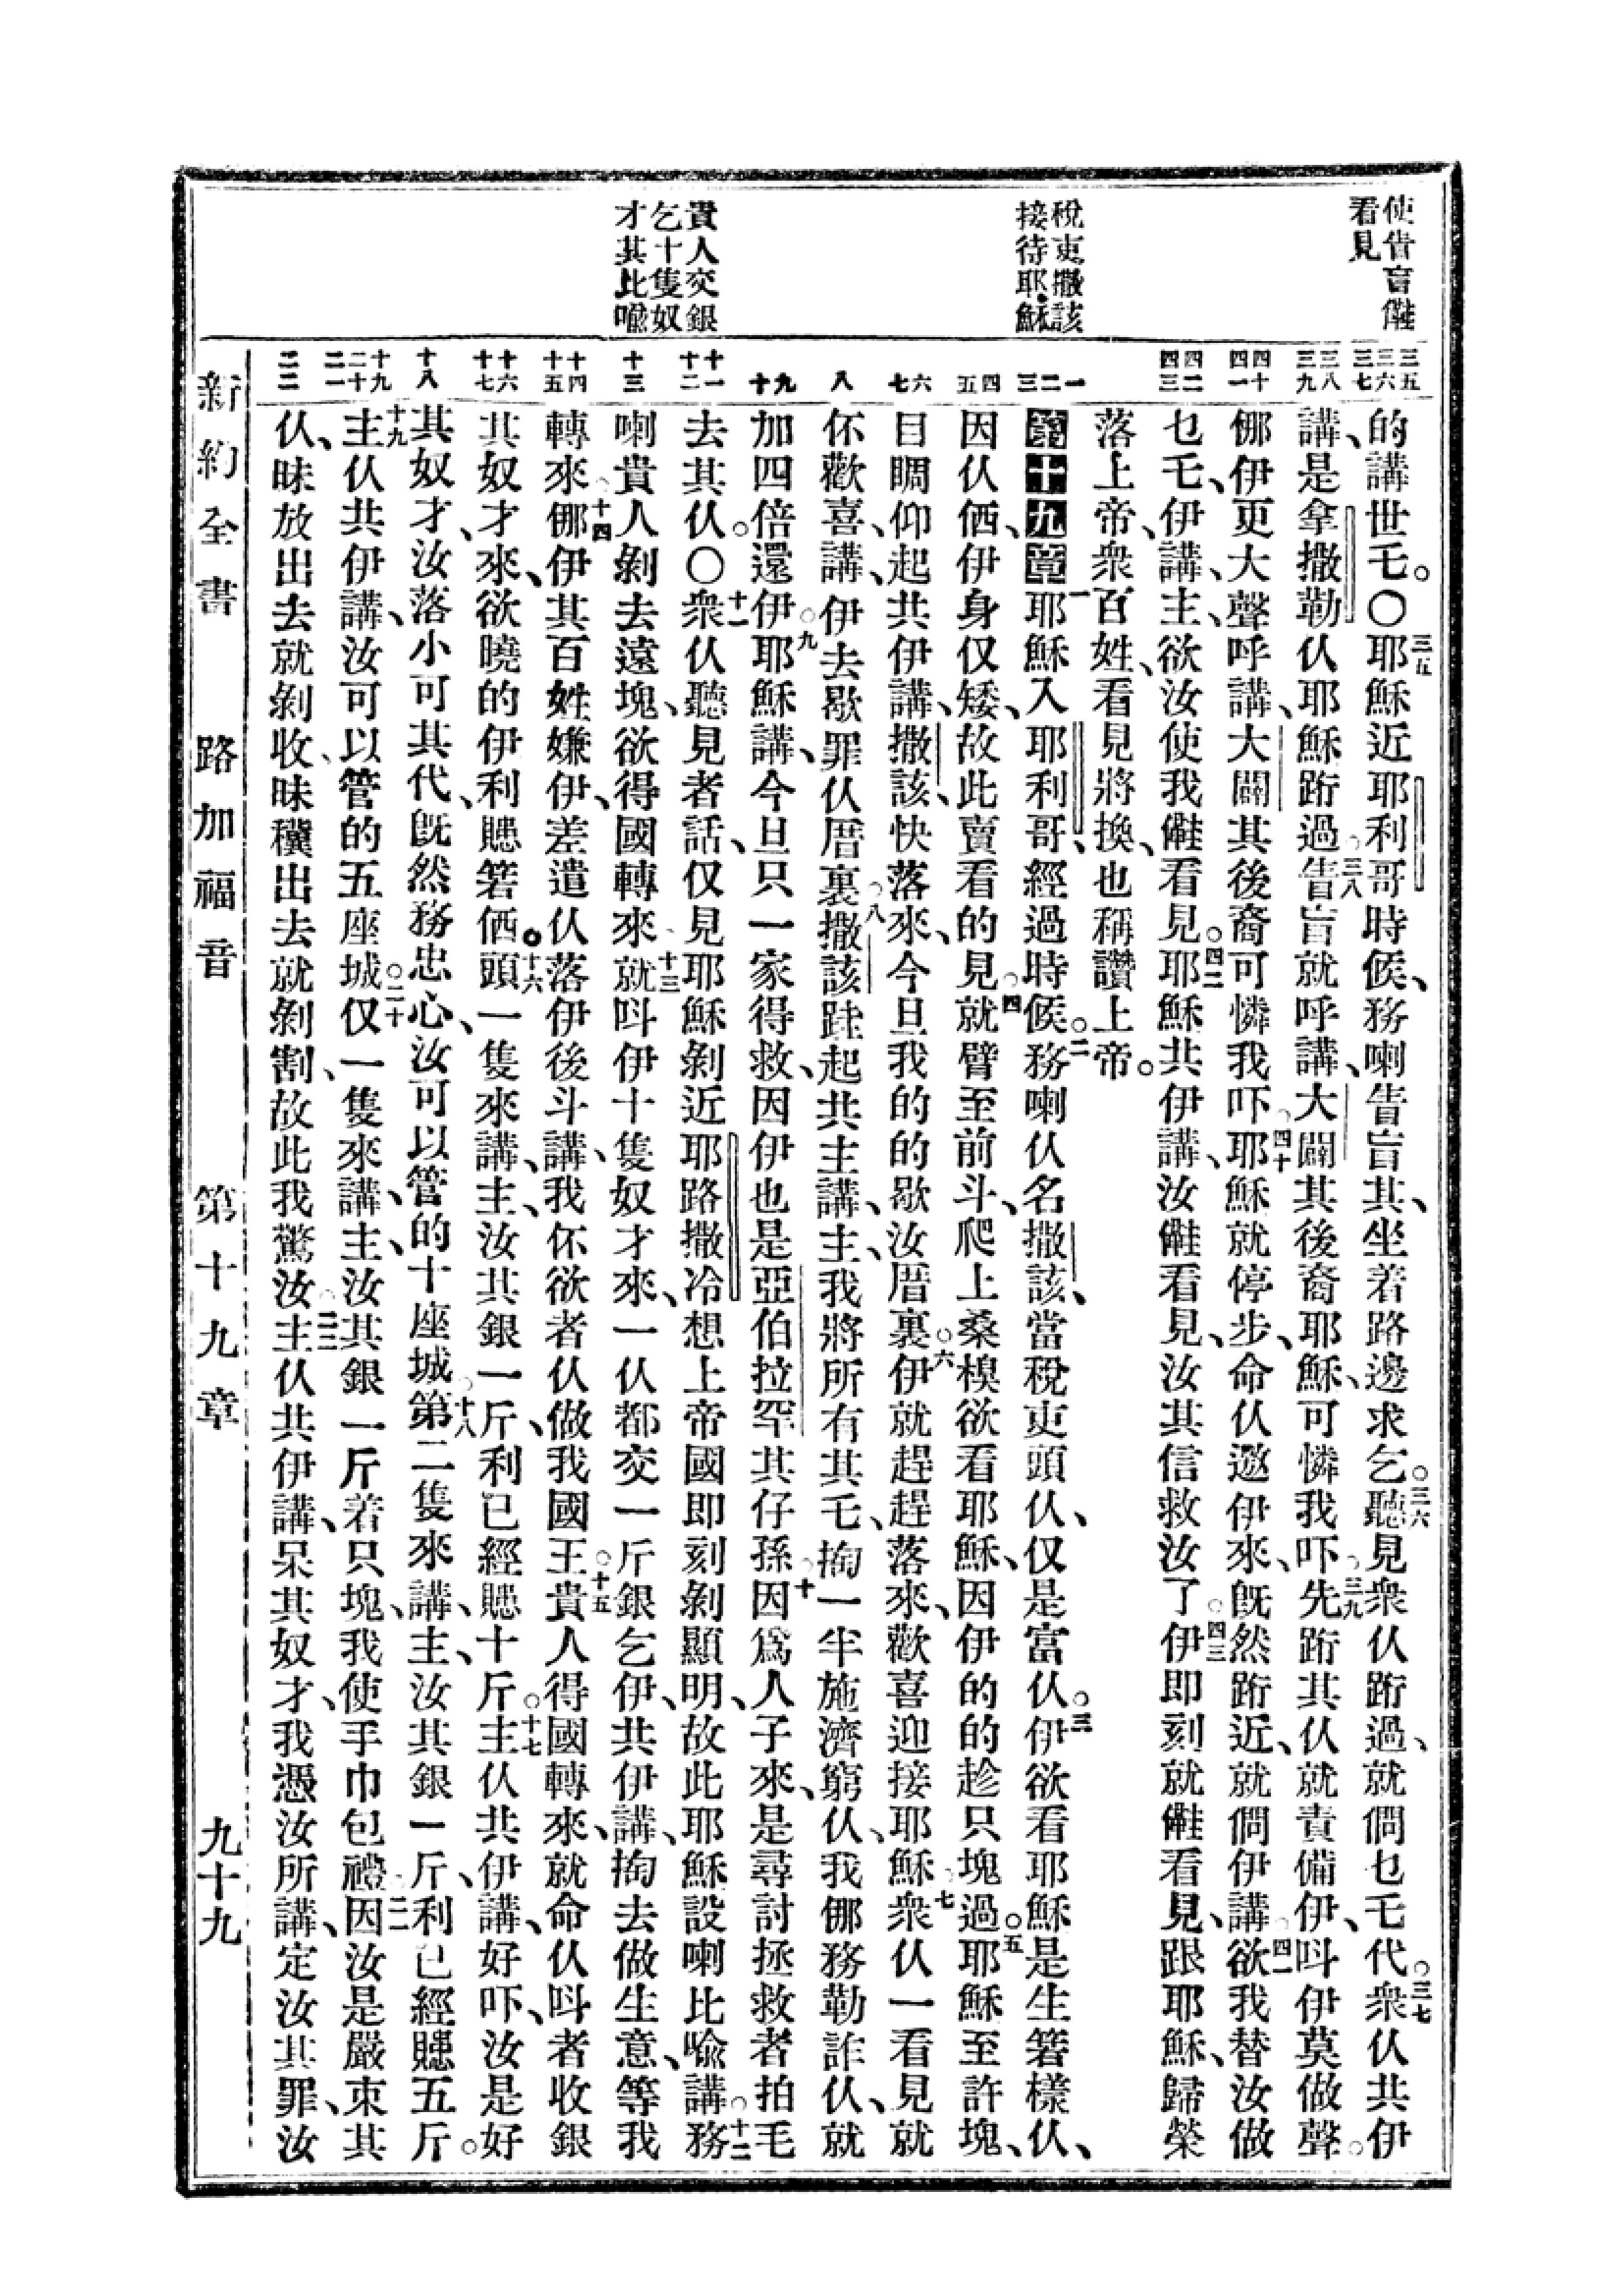 使眚盲𫢪
看見
稅吏撒該
接待耶穌
貴人交銀
乞十隻奴
才其比喻
三五 三六 三七
三八 三九
四十 四一
四二 四三
一 二 三
四 五
六 七
八
九 十
十一 十二
十三
十四 十五
十六 十七
十八
十九 二十 二一
二二
的講世乇。〇三五耶穌近耶利哥時候、務喇眚盲其、坐着路邊求乞。三六聽見衆仈跨過、就僩乜乇代。三七衆仈共伊
講、是拿撒勒仈耶穌跨過。三八眚盲就呼講、大闢其後裔耶穌、可憐我吓。三九先跨其仈就責備伊、呌伊莫做聲。
𠉂伊更大聲呼講、大闢其後裔可憐我吓。四十耶穌就停步、命仈邀伊來、旣然跨近、就僩伊講。四一欲我替汝做
乜乇、伊講、主、欲汝使我𫢪看見。四二耶穌共伊講、汝𫢪看見、汝其信救汝了。四三伊即刻就𫢪看見、跟耶穌、歸榮
落上帝、衆百姓、看見將換、也稱讚上帝。
第十九章 一耶穌入耶利哥、經過時候。二務喇仈名撒該、當稅吏頭仈、仅是富仈。三伊欲看耶穌是生箬樣仈、
因仈𠱃、伊身仅矮、故此賣看的見。四就臂至前斗、爬上桑模欲看耶穌、因伊的的趁只塊過。五耶穌至許塊、
目睭仰起共伊講、撒該、快落來、今旦我的的歇汝厝裏。六伊就趕趕落來、歡喜迎接耶穌。七衆仈一看見就
伓歡喜、講、伊去歇罪仈厝裏。八撒該跬起共主講、主、我將所有其乇、掏一半施濟窮仈、我𠉂務勒詐仈、就
加四倍還伊。九耶穌講、今旦只一家得救、因伊也是亞伯拉罕其仔孫。十因爲人子來、是尋討拯救者拍乇
去其仈。〇十一衆仈聽見者話、仅見耶穌剝近耶路撒冷、想上帝國即刻剝顯明、故此耶穌設喇比喻講。十二務
喇貴人剝去遠塊、欲得國轉來。十三就呌伊十隻奴才來、一仈都交一斤銀乞伊、共伊講、掏去做生意、等我
轉來。十四𠉂伊其百姓嫌伊、差遣仈落伊後斗講、我伓欲者仈做我國王。十五貴人得國轉來、就命仈呌者收銀
其奴才來、欲曉的伊利賰箬𠱃。十六頭一隻來講、主、汝其銀一斤、利已經賰十斤。十七主仈共伊講、好吓、汝是好
其奴才、汝落小可其代、旣然務忠心、汝可以管的十座城。十八第二隻來講、主、汝其銀一斤、利已經賰五斤。
十九主仈共伊講、汝可以管的五座城。二十仅一隻來講、主、汝其銀一斤着只塊、我使手巾包禮。二一因汝是嚴束其
仈、昧放出去就剝收、昧穬出去就剝割、故此我驚汝。二二主仈共伊講、呆其奴才、我憑汝所講、定汝其罪、汝
新約全書 路加福音 第十九章 九十九